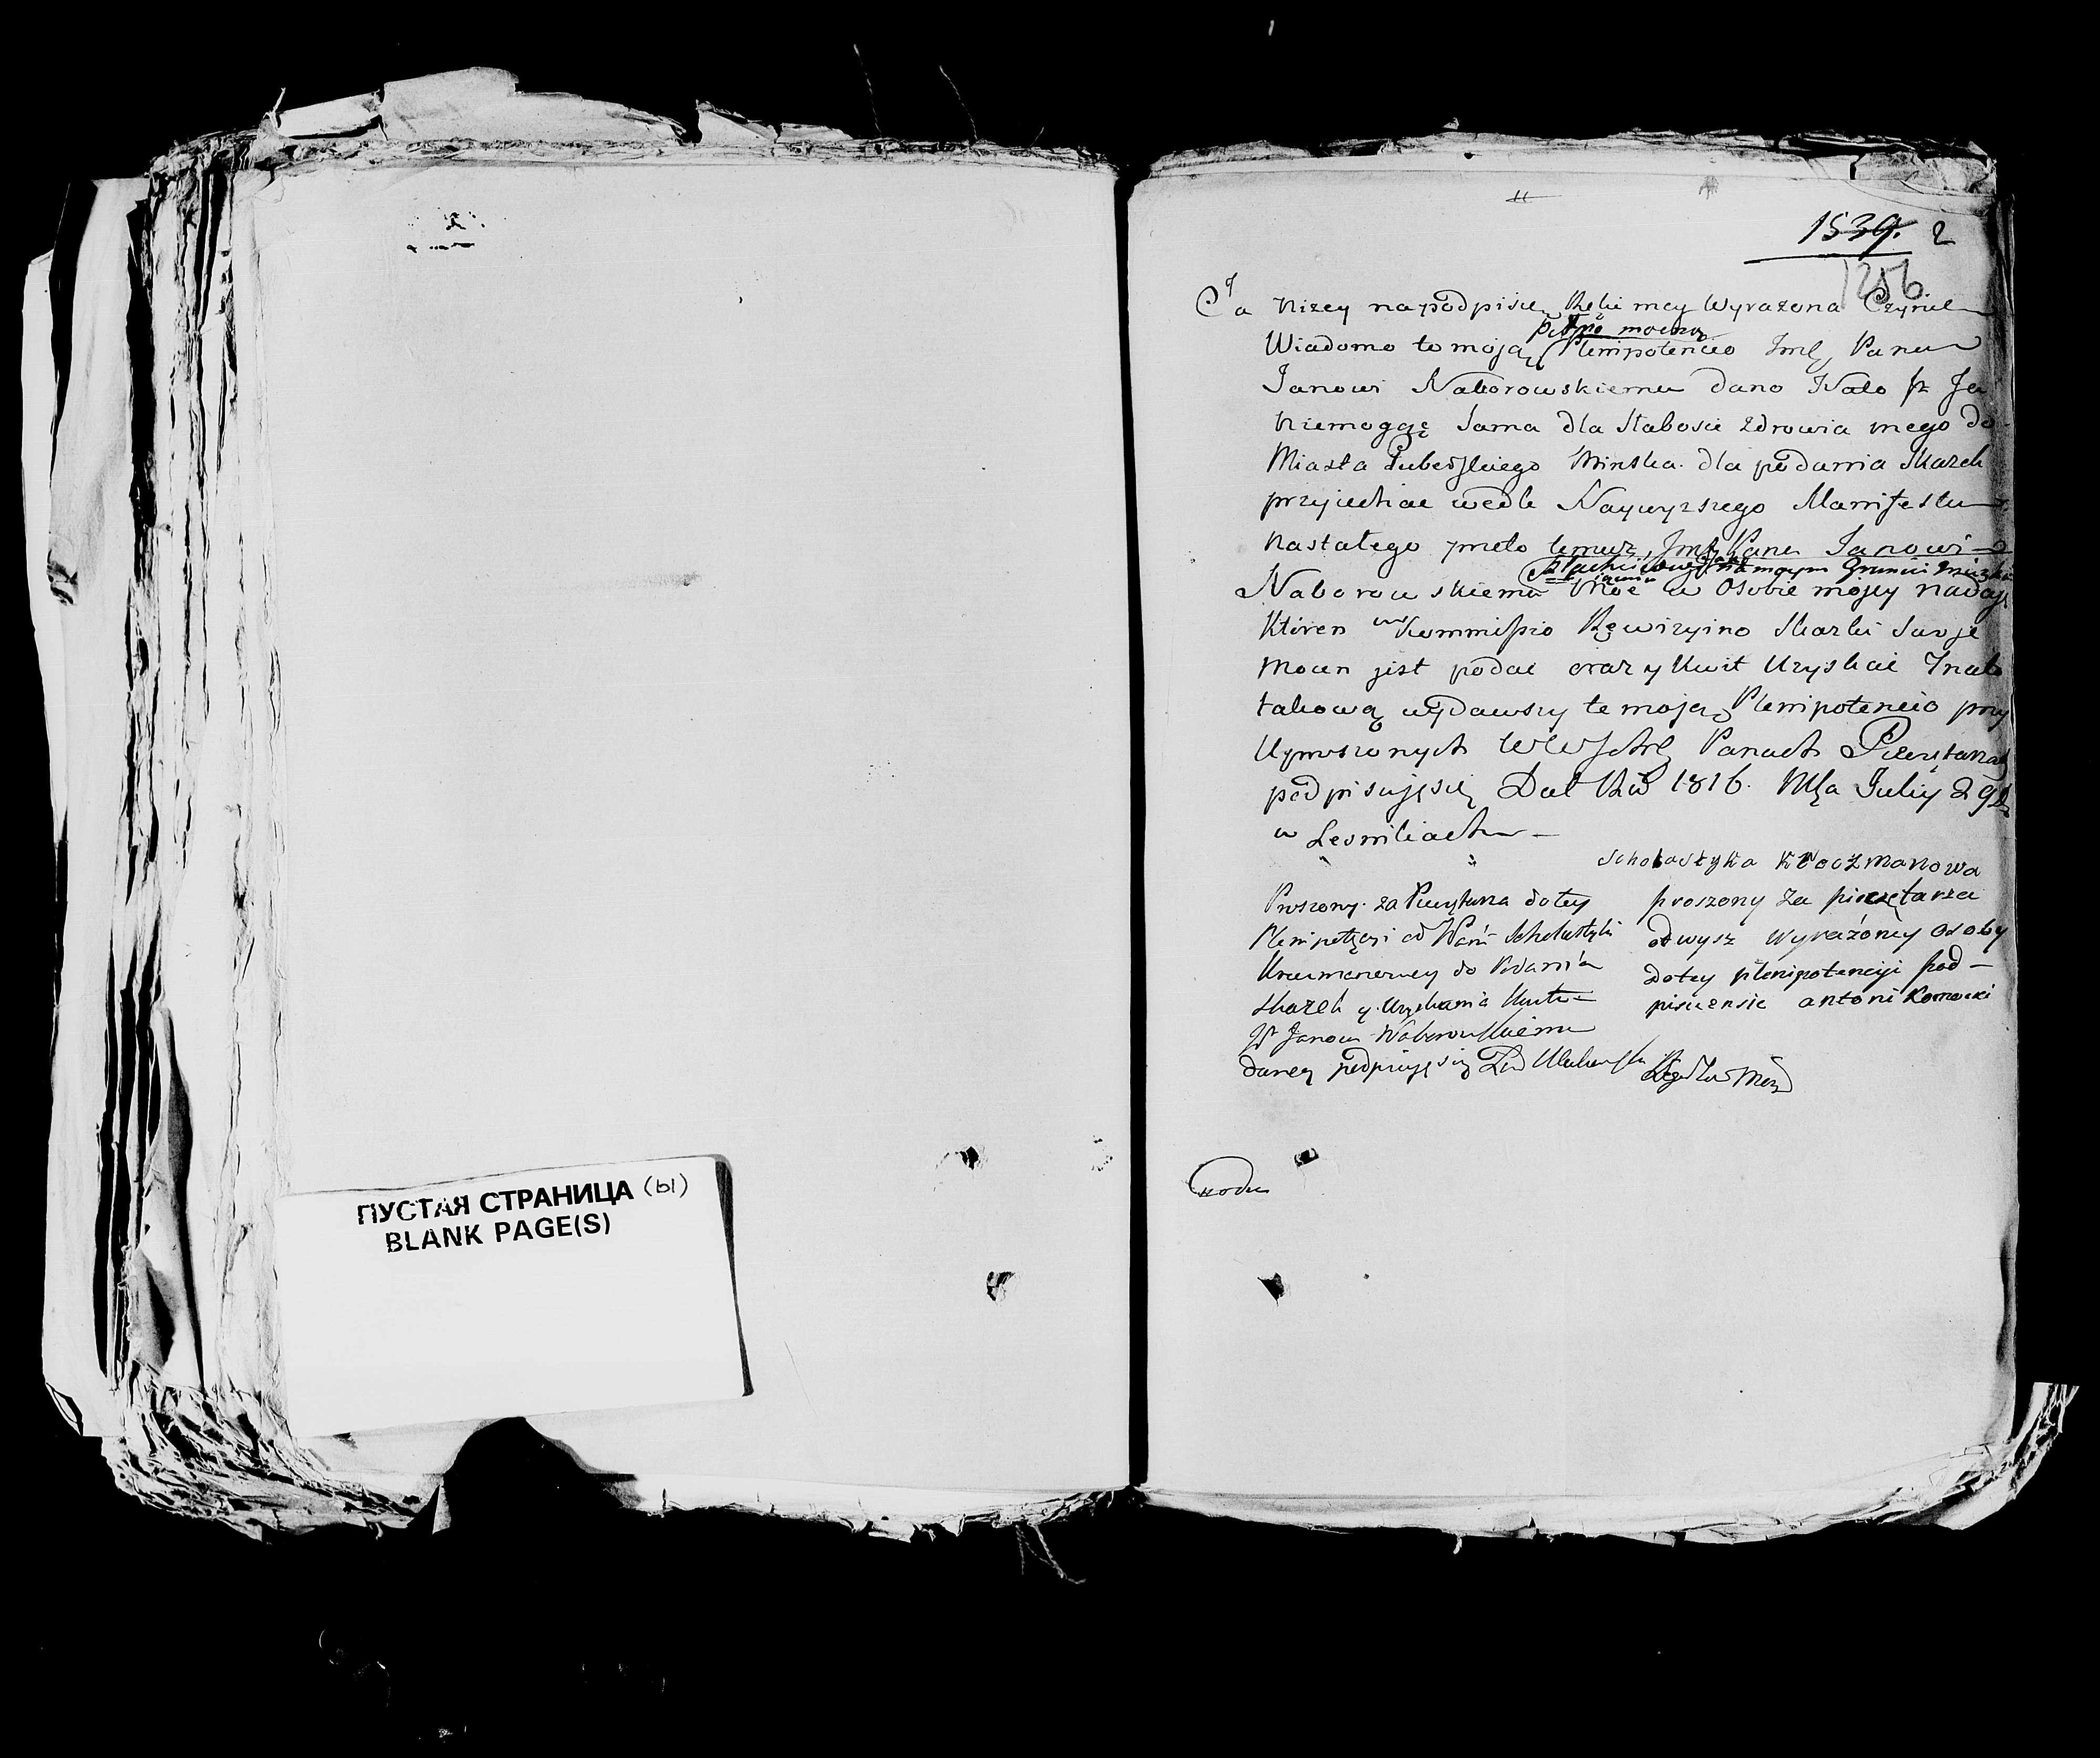 ПУСТАЯ СТРАНИЦА (ы)
BLANK PAGE(S)
1539. 2
1256
Ja nizey na podpisie Ręki mey Wyrażona Czynie
pełno mocną
Wiadomo to moją Plenipotencio Imę Panu
Janowi Naborowskiemu dano Na to iż Ja
niemogąę Sama dla Słabosci zdrowia mego do
Miasta Guberskiego Minska dla podania Skazek
przyjechac wedle Naywyzszego Manifestu
nastałego przeto temuz Imę Panu Janowi
Szlachcicowi na moym Gruncie
Naborowskiemu Moc w Osobie mojey nadaję
Któren w Kommissio Rewizyino Skazki Swoje
Mocen jest podac oraz y Kwit Uzyskac Na to
takową wydawszy te moją Plenipotencio przy
Uproszonych WW Panach Pieczętarzach
podpisuję się Dat Roku 1816. Mca Julij 29
w Lesnikach
Scholastyka Kroczmanowa
Proszony za Pieczętarza do tey
Plenipotęcyi od Pani Scholastyki
do Podania
Skazek y Uzyskania Kwitu
Janowi Naborowskiemu
daney podpisuję się
proszony za pieczętarza
od wysz Wyrażoney osoby
do tey plenipotencyi pod-
pisuiensie antoni